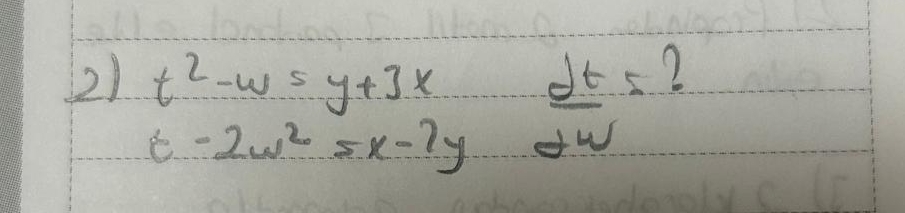 2) t² - w = y + 3x   dt/dw = ?
t - 2w² = x - 2y